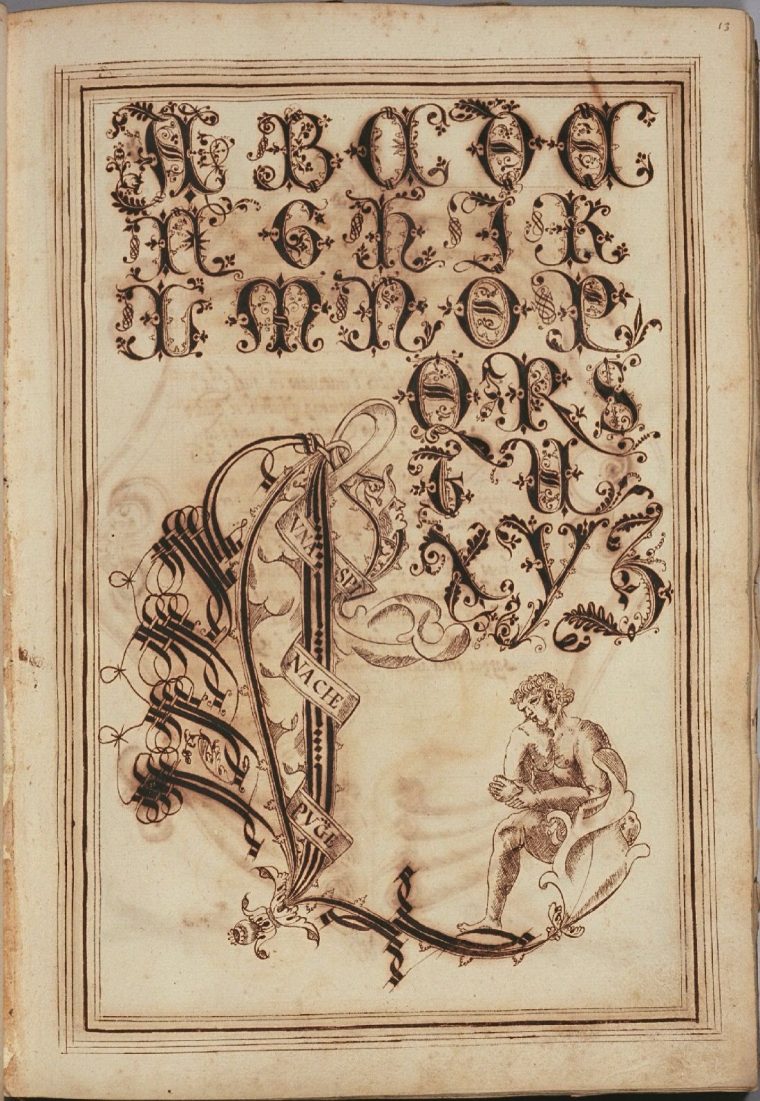 13
A B C D E
F G H I K
L M N O P
Q R S
T U
X Y Z
NACIE
PVGE